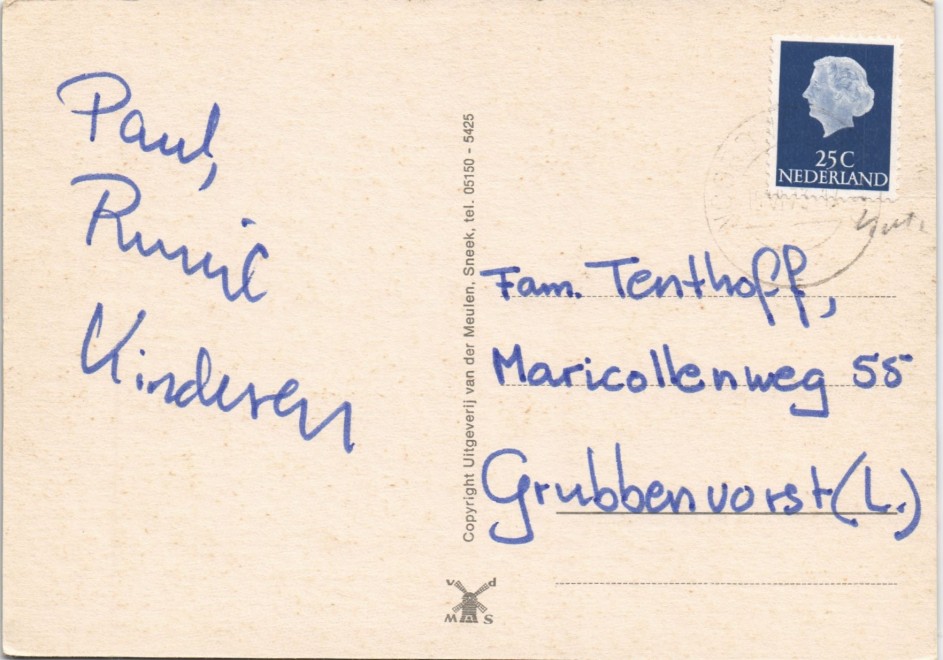 Paul,
Kinderen
Copyright Uitgeverij van der Meulen, Sneek, tel. 05150 - 5425
v d
M S
25C
NEDERLAND
Fam. Tenthoff,
Maricollenweg 55
Grubbenvorst (L.)